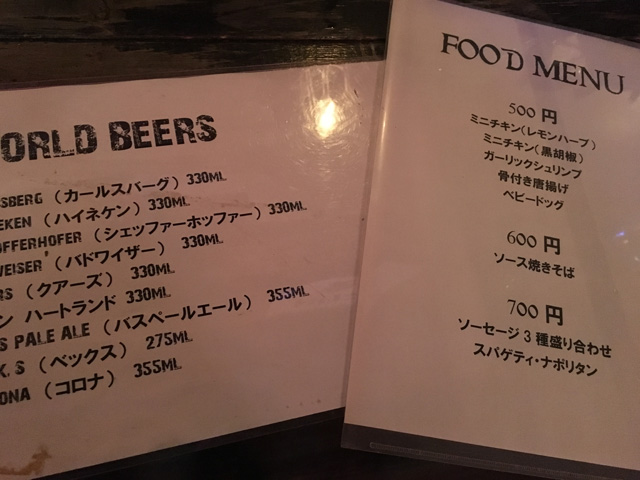 ORLD BEERS
SBERG (カールスバーグ) 330ML
EKEN (ハイネケン) 330ML
OFFERHOFER (シェッファーホッファー) 330ML
WEISER (バドワイザー) 330ML
RS (クアーズ) 330ML
ン ハートランド 330ML
S PALE ALE (バスペールエール) 355ML
K,S (ベックス) 275ML
ONA (コロナ) 355ML
FOOD MENU
500 円
ミニチキン(レモンハーブ)
ミニチキン(黒胡椒)
ガーリックシュリンプ
骨付き唐揚げ
ベビードッグ
600 円
ソース焼きそば
700 円
ソーセージ 3 種盛り合わせ
スパゲティ・ナポリタン